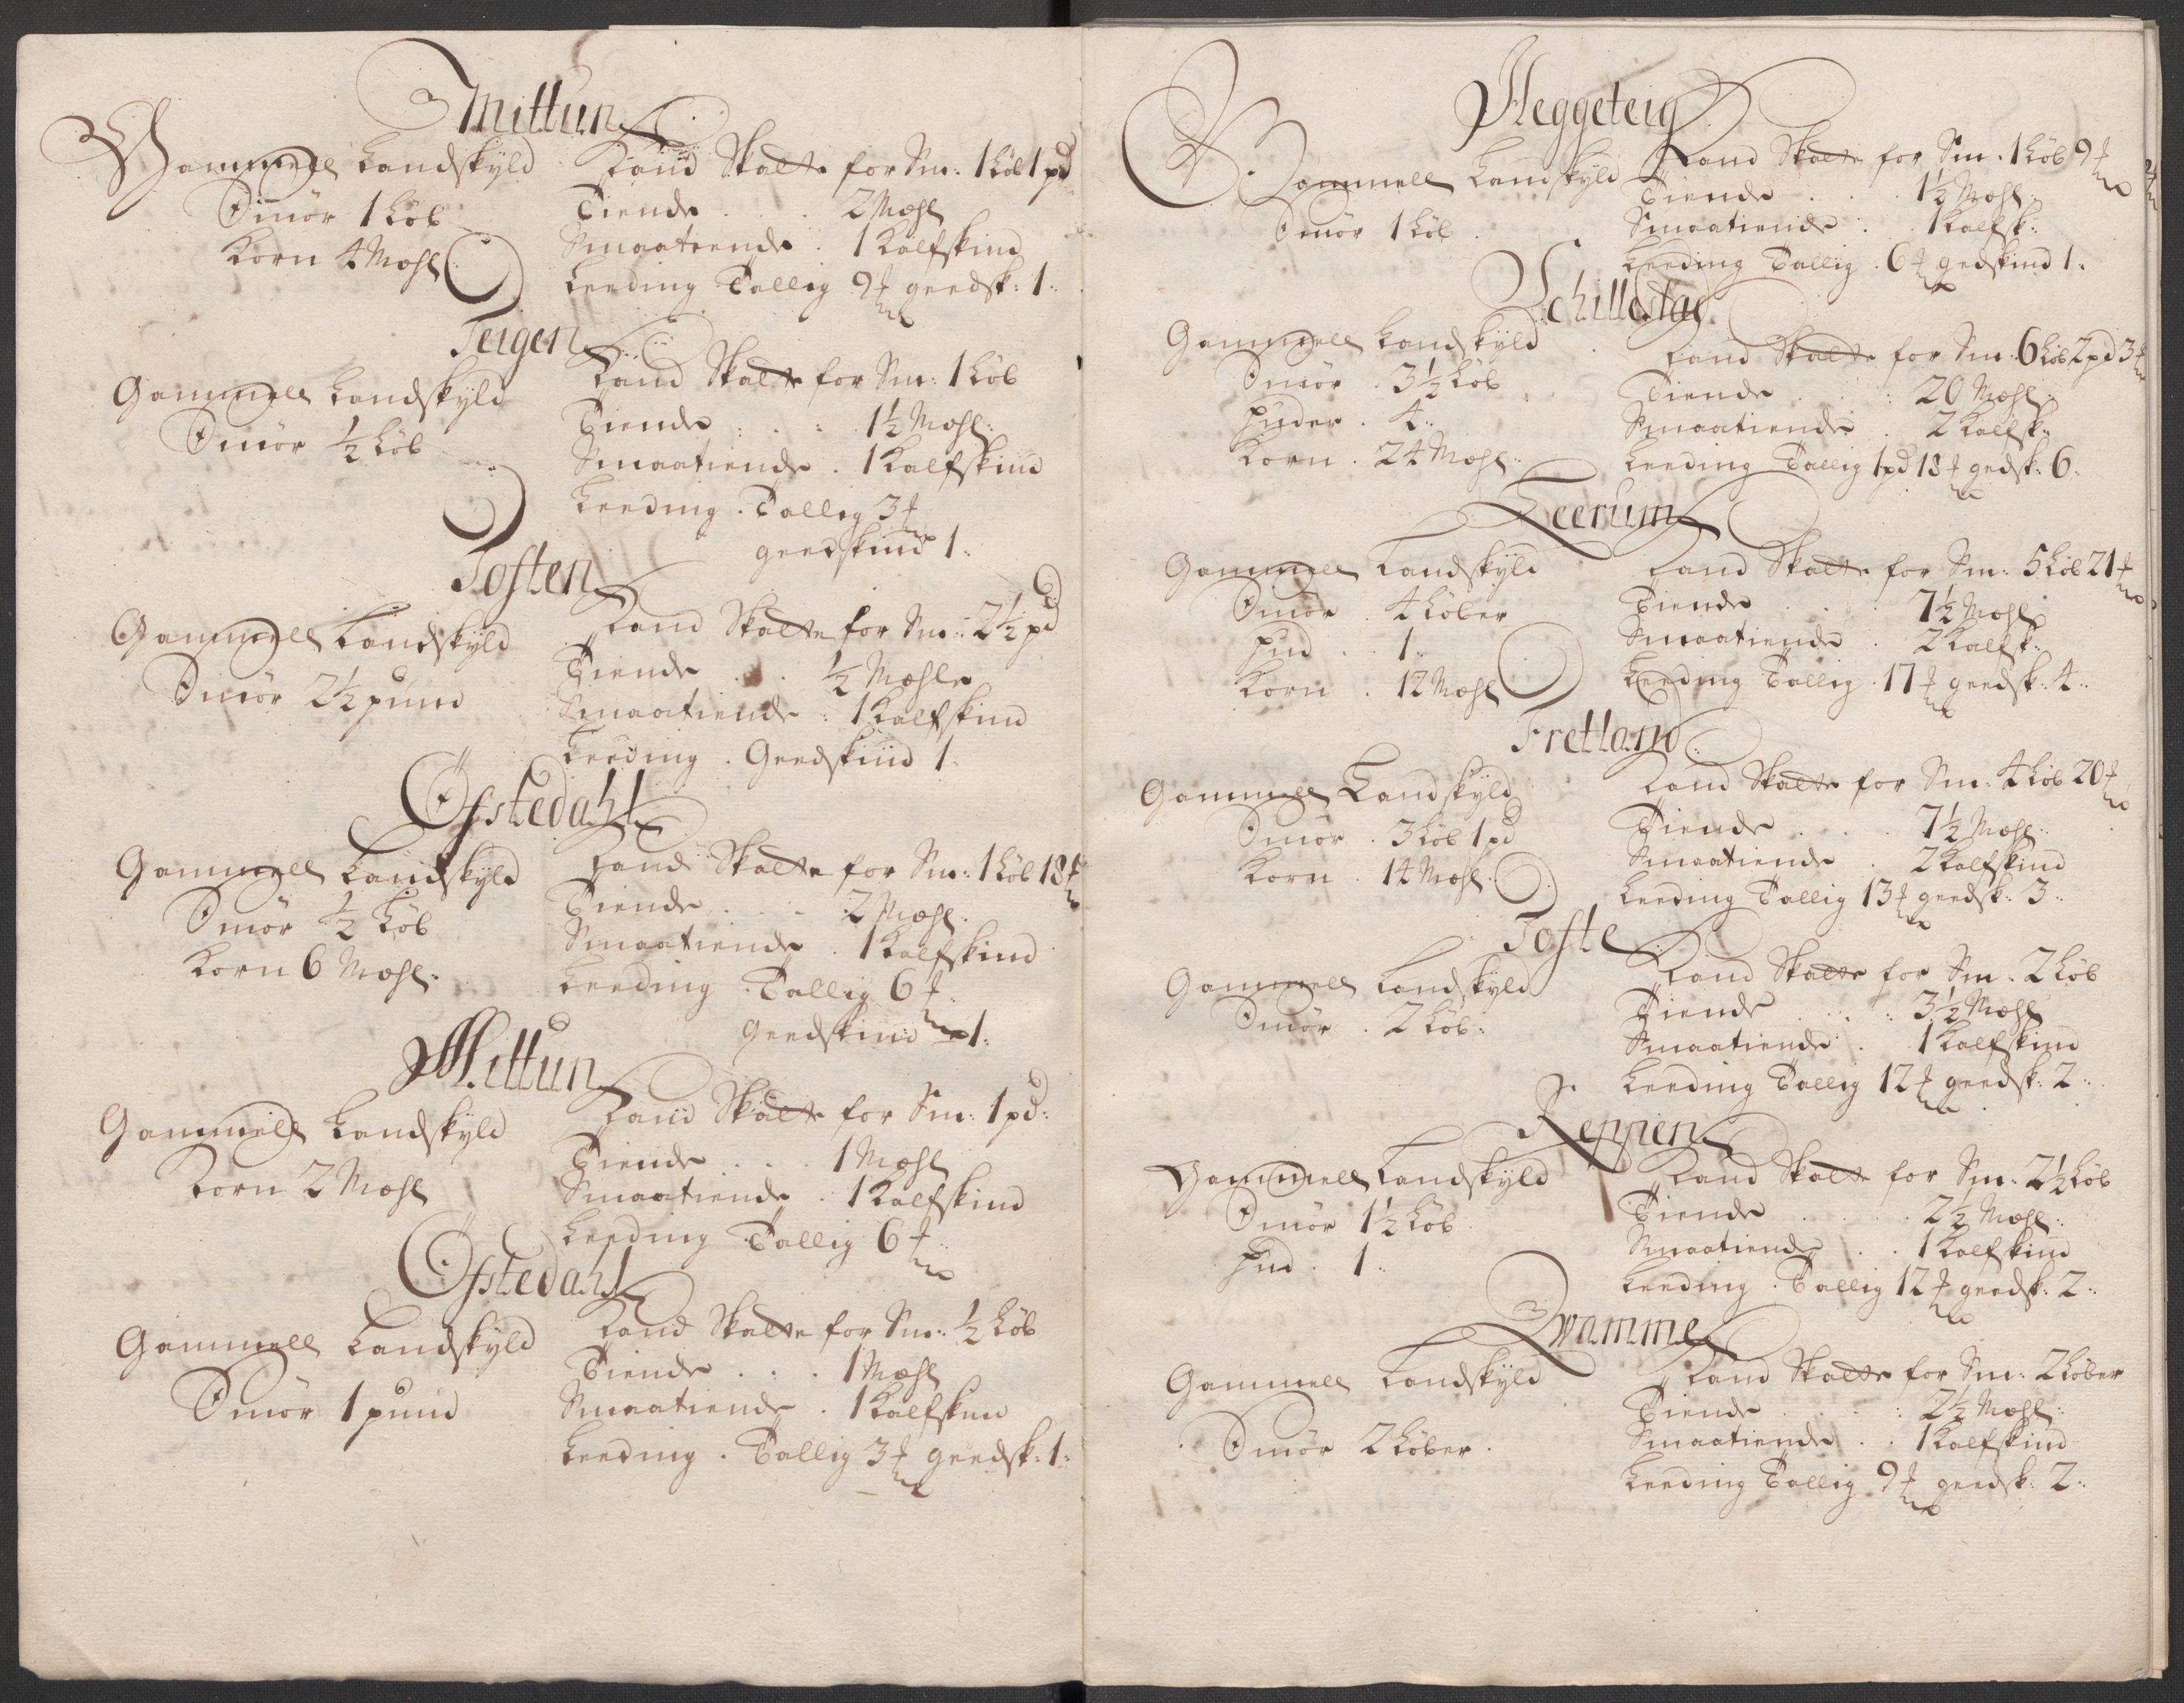 Mittun
Gammell Landskyld
Smör 1 Löb
Korn 4 Mæhl
Land Skatte for Sm: 1 Löb 1 pd
Tiende . . . 2 Mæhl
Smaatiende . 1 Kalfskind
Leeding Tallig 9 ℔ geedsk: 1:
Teigen
Gammell Landskyld
Smör ½ Löb
Land Skatte for Sm: 1 Löb
Tiende . . . 1½ Mæhl:
Smaatiende . 1 Kalfskind
Leeding . Tallig 3 ℔
geedskind 1:
Toften
Gammell Landskyld
Smör 2½ pund
Land Skatte for Sm: 2½ pd
Tiende . . ½ Mæhle
Smaatiende : 1 Kalfskind
Leeding . Geedskind 1:
Ofstedahl
Gammell Landskyld
Smör ½ Löb
Korn 6 Mæhl:
Land Skatte for Sm: 1 Löb 18 ℔
Tiende . . . 2 Mæhl.
Smaatiende . 1 Kalfskind
Leeding . Tallig 6 ℔:
Geedskind 1:
Mittun
Gammell Landskyld
Korn 2 Mæhl
Land Skatte for Sm: 1 pd:
Tiende . . . 1 Mæhl
Smaatiende . 1 Kalfskind
Leeding Tallig 6 ℔:
Ofstedahl
Gammell Landskyld
Smör 1 pund
Land Skatte for Sm: ½ Löb
Tiende . . . 1 Mæhl
Smaatiende . 1 Kalfskind
Leeding . Tallig 3 ℔ geedsk: 1:
Heggeteig
Gammell Landskyld
Smör 1 Löb .
Land Skatte for Sm: 1 Löb 9 ℔
Tiende . . . 1½ Mæhl:
Smaatiende . . 1 Kalfsk:
Leeding Tallig . 6 ℔ gedskind 1:
Schillestad
Gammell Landskyld
Smör . 3½ Löb
Huder . 4:
Korn . 24 Mæhl:
Land Skatte for Sm: 6 Löb 2 pd 3 ℔
Tiende . . : 20 Mæhl:
Smaatiende . 2 Kalfsk:
Leeding Tallig 1 pd 18 ℔ gedsk: 6:
Leerum
Gammell Landskyld
Smör . 4 Löber
Hud . . 1:
Korn . 12 Mæhl
Land Skatte for Sm: 5 Löb 21 ℔
Tiende . . . 7½ Mæhl
Smaatiende . 2 Kalfsk:
Leeding Tallig . 17 ℔ geedsk: 4:
Fretland
Gammell Landskyld
Smör . 3 Löb 1 pd
Korn . 14 Mæhl:
Land Skatte for Sm: 4 Löb 20 ℔
Tiende . . . 7½ Mæhl:
Smaatiende . 2 Kalfskind
Leeding Tallig 13 ℔ geedsk: 3:
Tofte
Gammell Landskyld
Smör . 2 Löb:
Land Skatte for Sm: 2 Löb
Tiende . . : 3½ Mæhl
Smaatiende . 1 Kalfskind
Leeding Tallig 12 ℔ geedsk: 2:
Reppen
Gammell Landskyld
Smör 1½ Löb .
Hud . 1:
Land Skatte for Sm: 2½ Löb
Tiende . . . 2½ Mæhl:
Smaatiende . . 1 Kalfskind
Leeding . Tallig 12 ℔ geedsk: 2:
Qvamme
Gammell Landskyld
Smör 2 Löber .
Land Skatte for Sm: 2 Löber
Tiende . . : 2½ Mæhl:
Smaatiende . . 1 Kalfskind
Leeding Tallig 9 ℔ geedsk: 2: